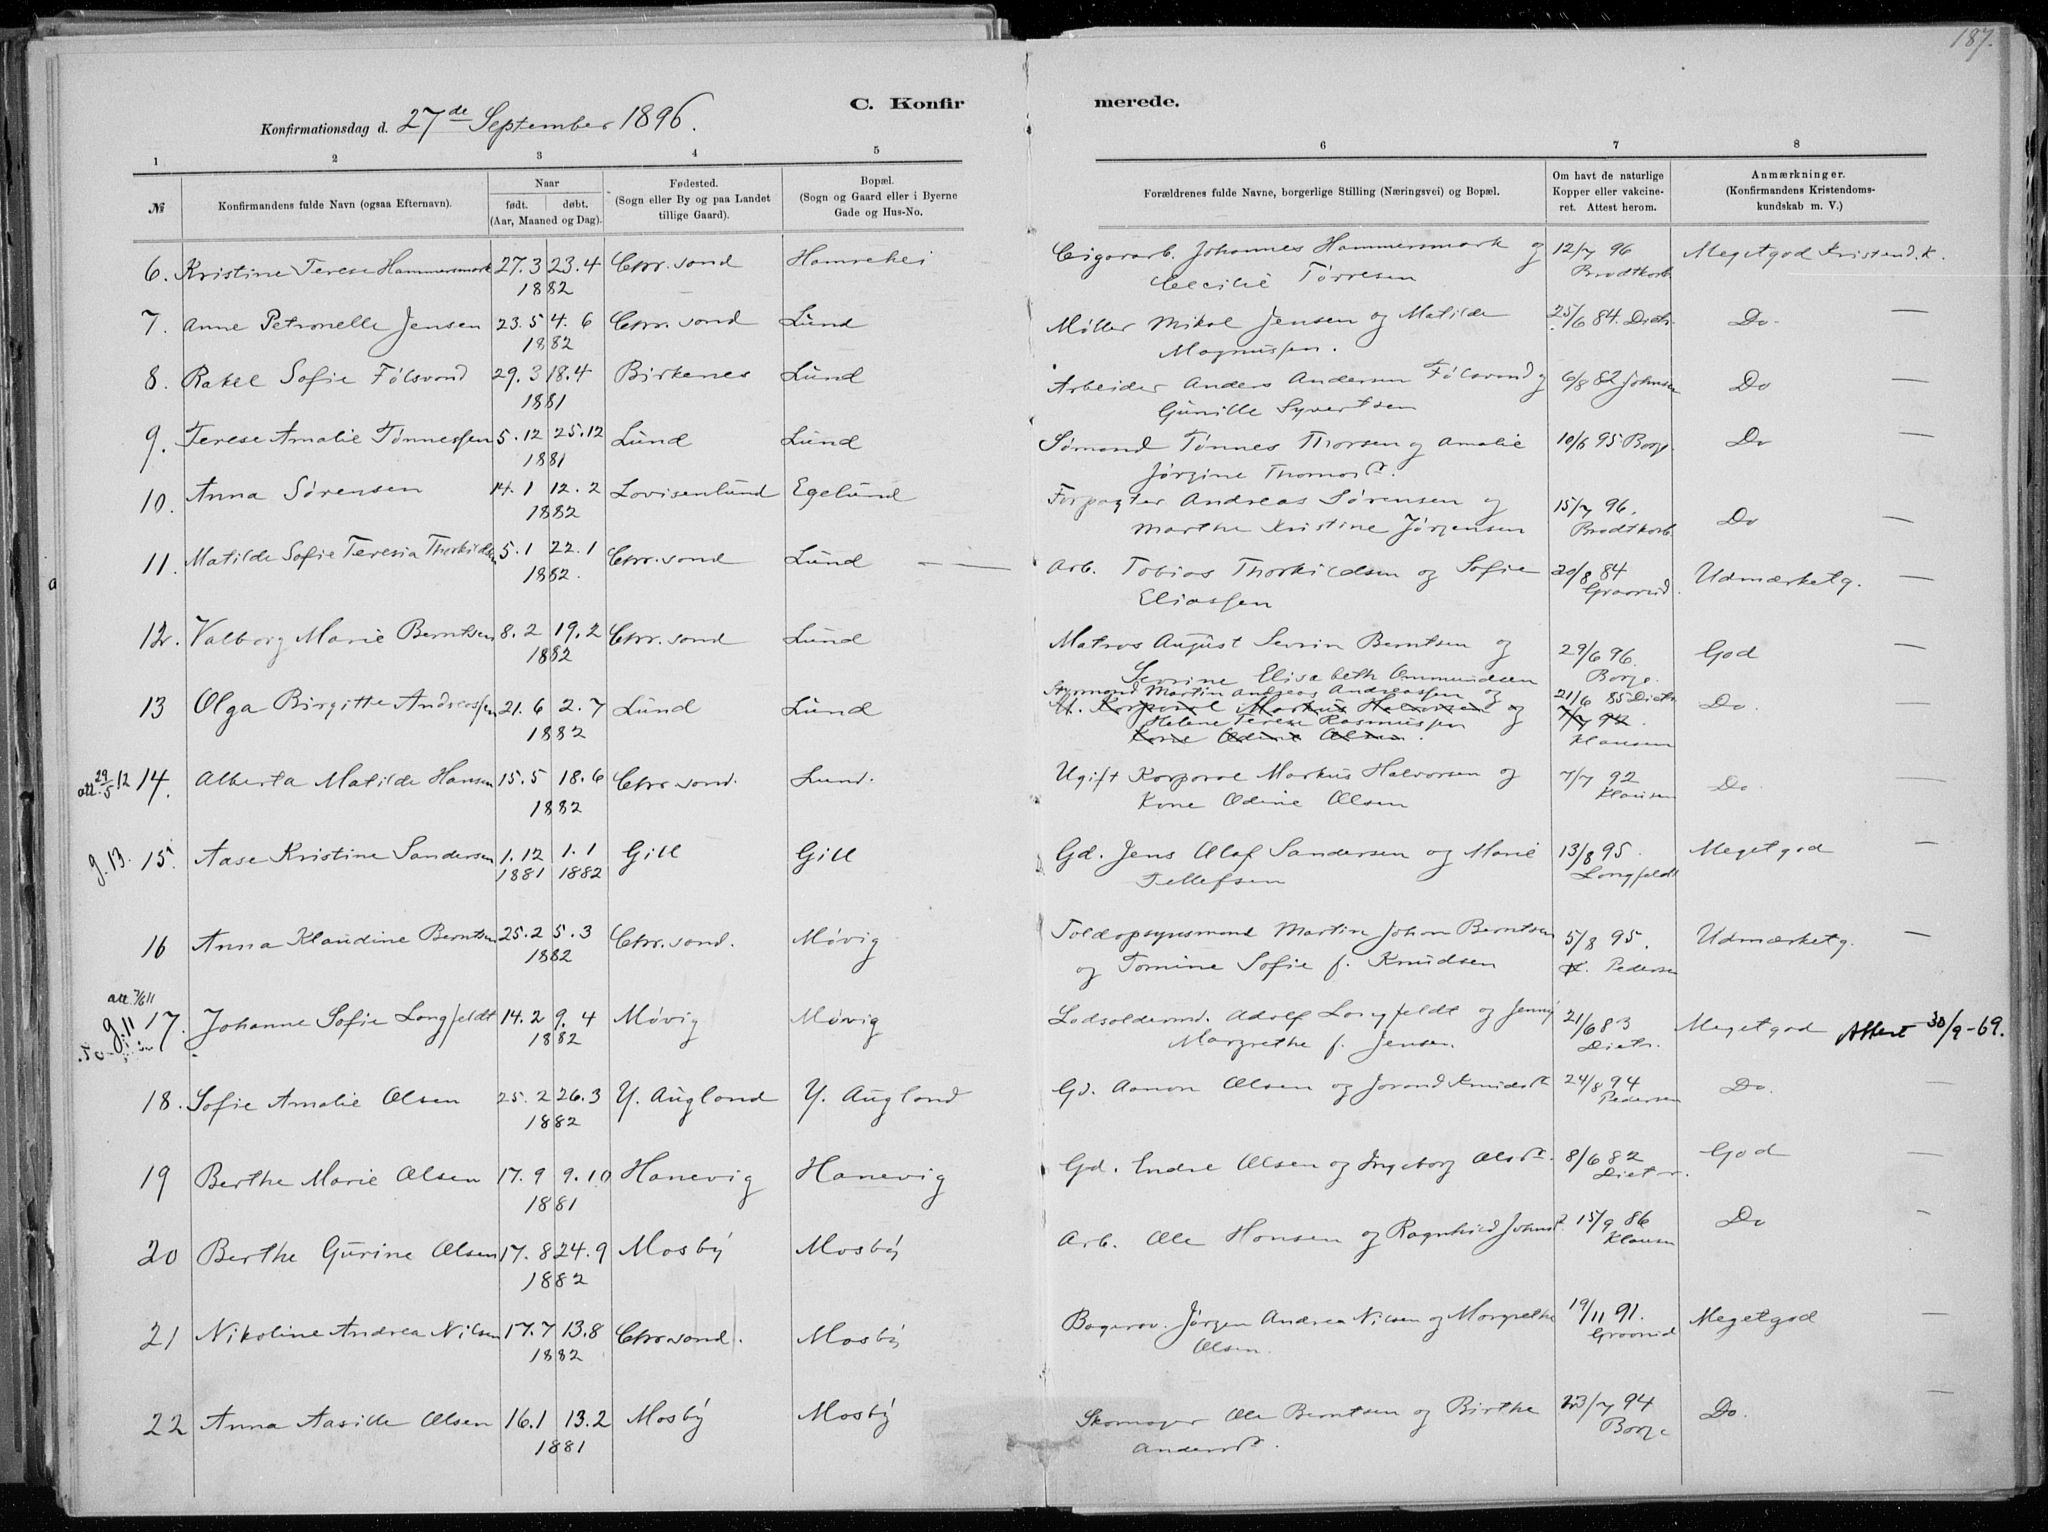 187.
C. Konfirmerede.
Konfirmationsdag d. 27de September 1896.
1 2 3 4 5 6 7 8
№ Konfirmandens fulde Navn (ogsaa Efternavn). Naar født. døbt. (Aar, Maaned og Dag). Fødested. (Sogn eller By og paa Landet tillige Gaard). Bopæl. (Sogn og Gaard eller i Byerne Gade og Hus-No. Forældrenes fulde Navne, borgerlige Stilling (Næringsvei) og Bopæl. Om havt de naturlige Kopper eller vakcineret. Attest herom. Anmærkninger. (Konfirmandens Kristendomskundskab m. V.)
6. Kristine Terese Hammersmark 27.3 23.4 Chr.sand Hamrehei Cigararb. Johannes Hammersmark og 12/7 96 Megetgod Kristend.k.
1882 Cecilie Tørresen Brodtkorb
7. Anne Petronelle Jensen 23.5 4.6 Chr.sand Lund Møller Mikal Jensen og Matilde 25/6 84. Dietr. Do. —
1882 Magnussen.
8. Rakel Sofie Fölsvand 29.3 18.4 Birkenes Lund Arbeider Anders Andersen Fölsvand og 6/8 82 Johnsen Do —
1881 Gunille Syvertsen
9. Terese Amalie Tønnessen 5.12 25.12 Lund Lund Sømand Tønnes Thorsen og Amalie 10/6 95 Borge. Do —
1881 Jørgine Thomasd.
10. Anna Sørensen 14.1 12.2 Lovisenlund Egelund Forpagter Andreas Sørensen og 15/7 96. Do —
1882 Marthe Kristine Jørgensen Brodtkorb.
11. Matilde Sofie Teresia Thorkildsen 5.1 22.1 Chr.sand Lund — Arb. Tobias Thorkildsen og Sofie 20/8 84 Udmærketg. —
1882. Eliassen Graarud.
12. Valborg Marie Berntsen 8.2 19.2 Chr.sand Lund Matros August Sevrin Berntsen og 29/6 96. God —
1882 Sevrine Elisabeth Ommundsen Borge.
13 Olga Birgitte Andreassen 21.6 2.7 Lund Lund Styrmand Martin Andreas Andreassen og 21/6 85 Dietr. Do. —
1882 U. Korporal Markus Halvorsen og 7/7 92.
Helene Terese Rasmussen Klausen
Kone Odine Olsen.
att. 29/5 12 14. Alberta Matilde Hansen 15.5 18.6 Chr.sand. Lund. Ugift Korporal Markus Halvorsen og 7/7 92 Do. —
1882 Kone Odine Olsen Klausen
g. 13. 15. Aase Kristine Sandersen 1.12 1.1 Gill Gill Gd. Jens Olaf Sandersen og Marie 13/8 95. Megetgod —
1881 1882 Tellefsen Longfeldt
16 Anna Klaudine Berntsen 25.2 5.3 Chr.sand. Møvig Toldopsynsmand Martin Johan Berntsen 5/8 95. Udmærketg. —
1882 og Tomine Sofie f. Knudsen Pedersen
att. 7/6 11
g. 11 17. Johanne Sofie Longfeldt 14.2 9.4 Møvig Møvig Lodsoldermd. Adolf Longfeldt og Jenny 21/6 83 Megetgod Attest 30/9-69.
1882 Margrethe f. Jensen. Dietr.
18. Sofie Amalie Olsen 25.2 26.3 Y. Augland Y. Augland Gd. Aanon Olsen og Jorand Knudsd. 24/8 94 Do. —
1882 Pedersen
19 Berthe Marie Olsen 17.9 9.10 Hanevig Hanevig Gd. Endre Olsen og Ingeborg Olsd. 8/6 82 God —
1881 Dietr.
20 Berthe Gurine Olsen 17.8 24.9 Mosby Mosby Arb. Ole Hansen og Ragnhild Johnsd. 15/9 86 Do —
1882 Klausen
21 Nikoline Andrea Nilsen 17.7 13.8 Chr.sand. Mosby Bagerarb. Jørgen Andrea Nilsen og Margrethe 19/11 91. Megetgod —
1882 Olsen. Graarud
22 Anna Aasille Olsen 16.1 13.2 Mosby Mosby Skomager Ole Berntsen og Birthe 23/7 94 Do. —
1881 Andersd. Borge